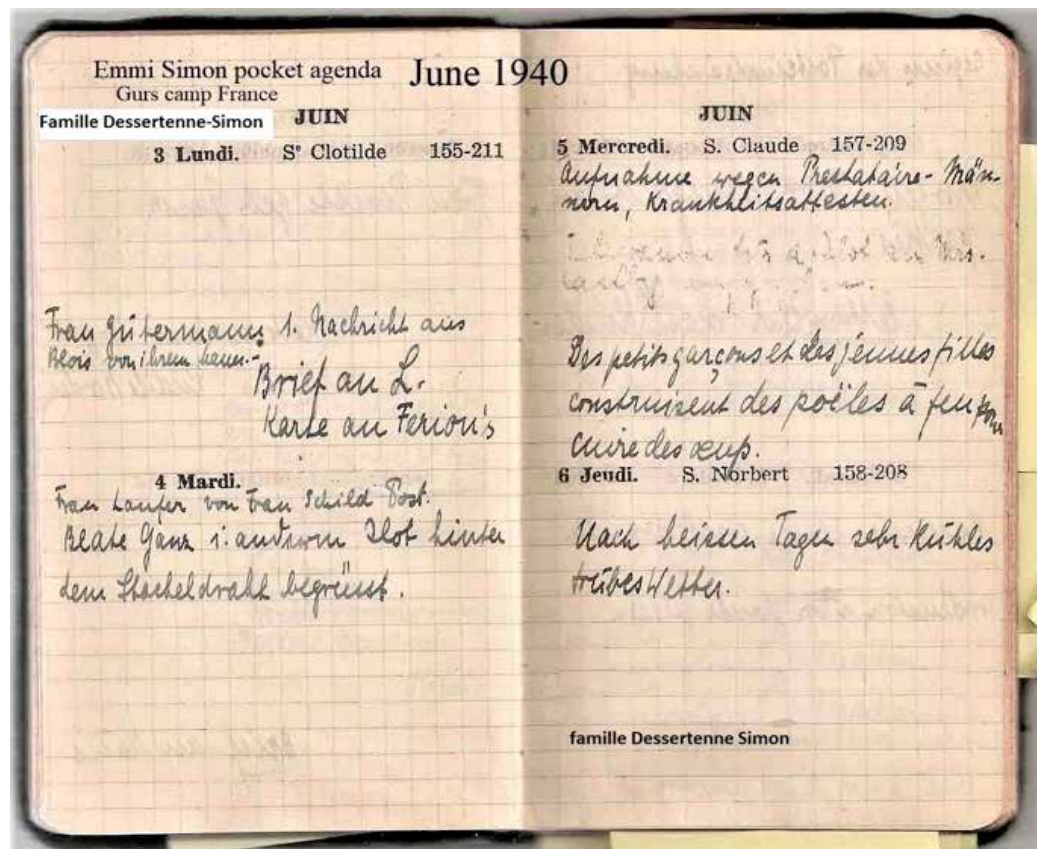 Emmi Simon pocket agenda June 1940
Gurs camp France
Famille Dessertenne-Simon
JUIN
3 Lundi. Se Clotilde 155-211
Frau Gütermann 1. Nachricht aus
Blois von ihrem
Brief an L.
Karte an Ferion's
4 Mardi.
Frau Laufer von Frau Schild Post.
Beate Ganz i. anderen Ilot hinter
dem Stacheldraht begrüsst.
JUIN
5 Mercredi. S. Claude 157-209
Aufnahme wegen Prestataire-Män-
nern, Krankheitsattesten.
Des petits garçons et des jeunes filles
construisent des poëles à feu pour
cuire des œufs.
6 Jeudi. S. Norbert 158-208
Nach heissen Tagen sehr kühles
trübes Wetter.
famille Dessertenne Simon